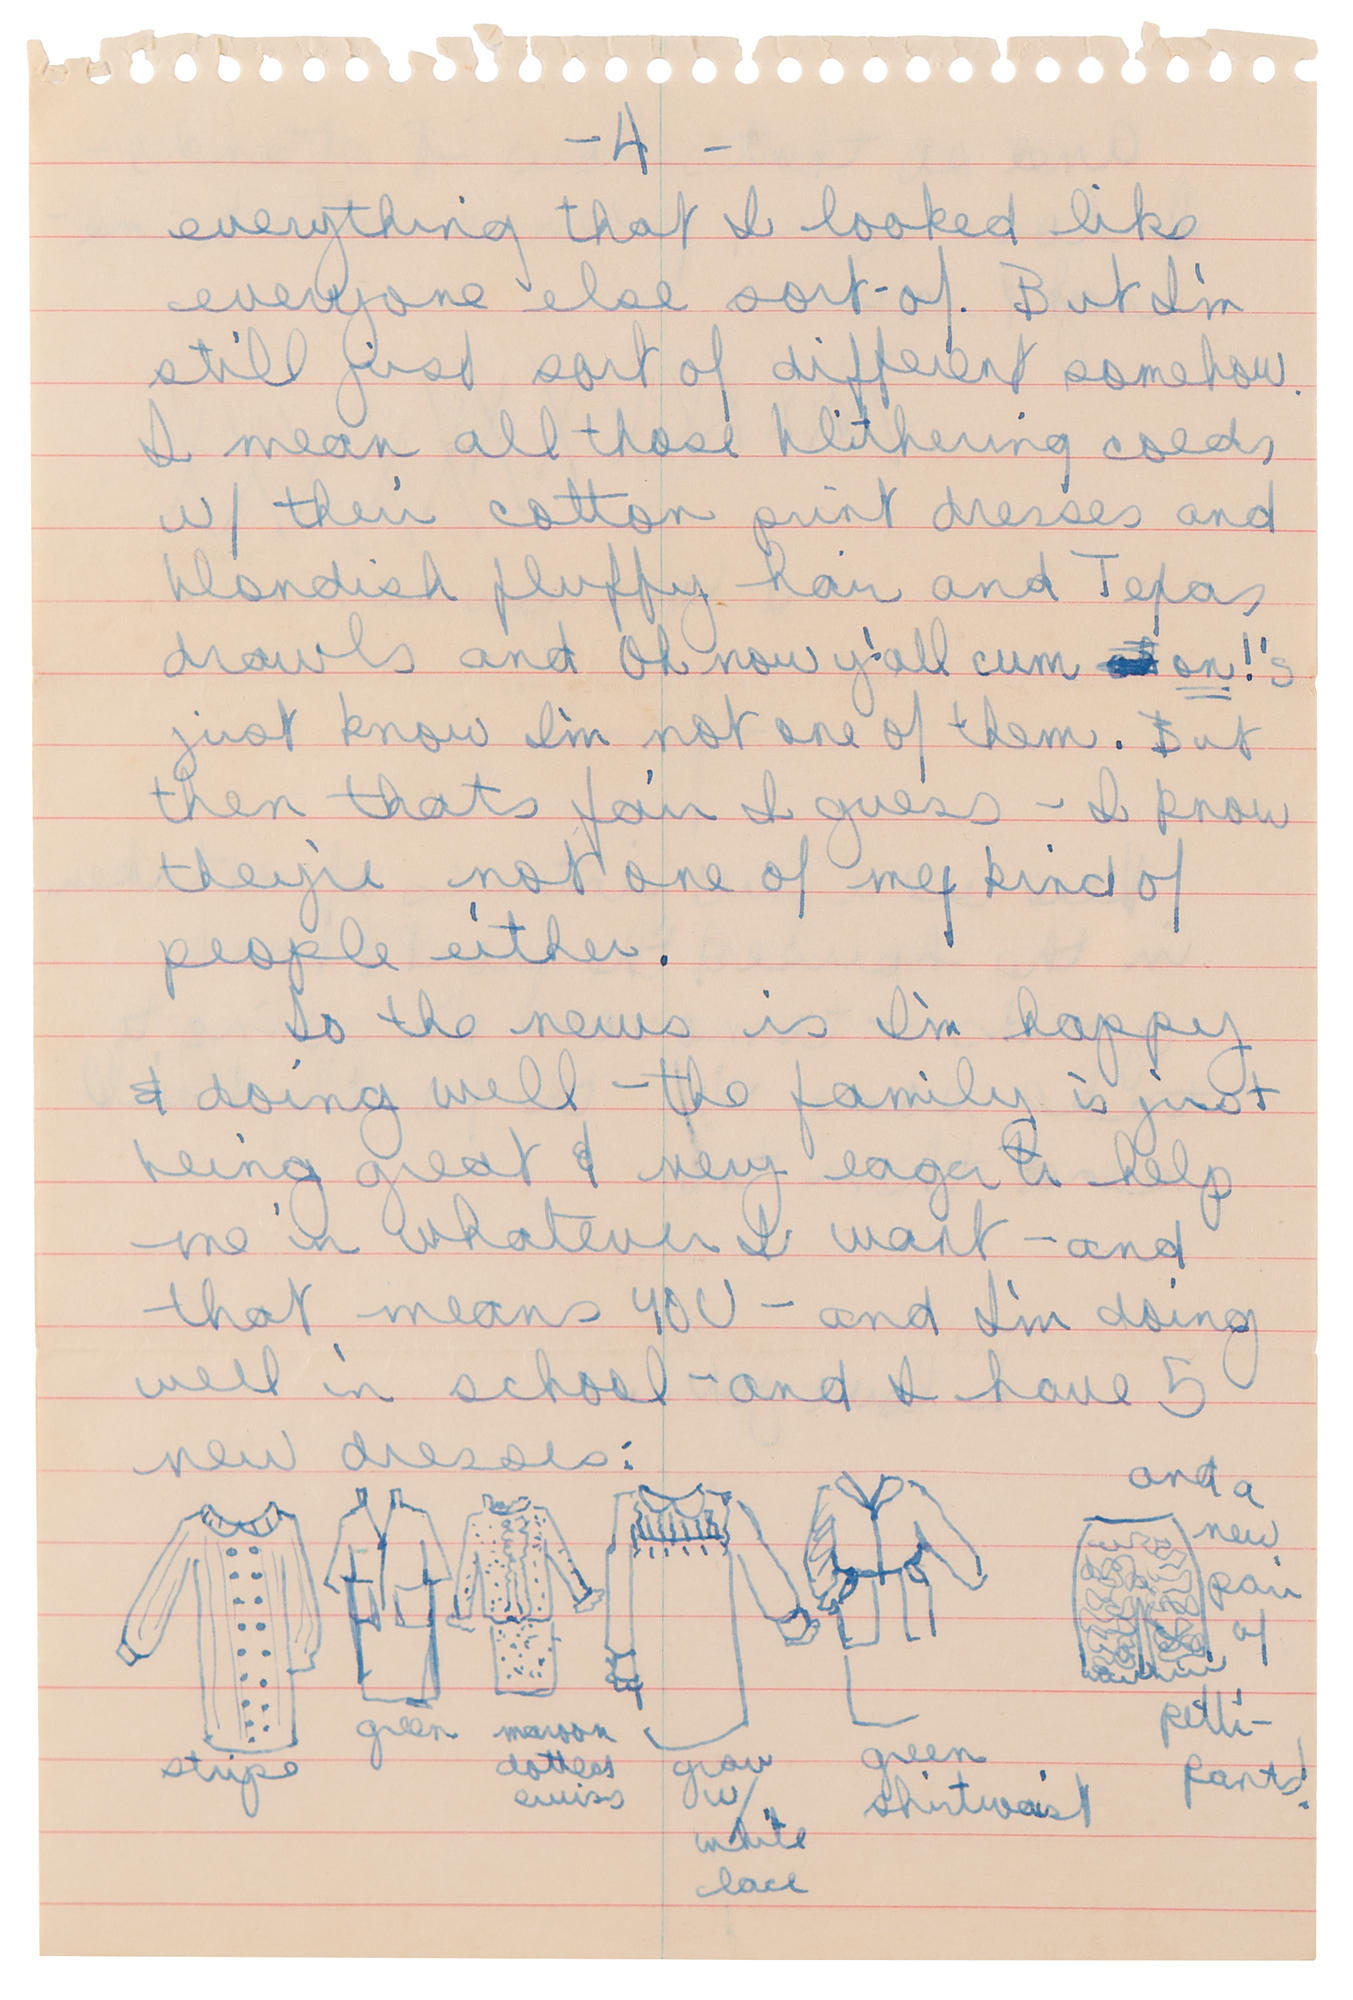 -4-
everything that I looked like
everyone else sort-of. But I'm
still just sort of different somehow.
I mean all those blithering coeds
w/ their cotton print dresses and
blondish fluffy hair and Texas
drawls and Oh now y'all cum on!'s
just know I'm not one of them. But
then thats fair I guess - I know
they're not one of my kind of
people either.
So the news is I'm happy
& doing well - the family is just
being great & very eager to help
me in whatever I want - and
that means YOU - and I'm doing
well in school - and I have 5
new dresses:
stripe
green
maroon
dotted
swiss
gray
w/
white
lace
green
shirtwaist
and a
new
pair
of
petti-
pants!